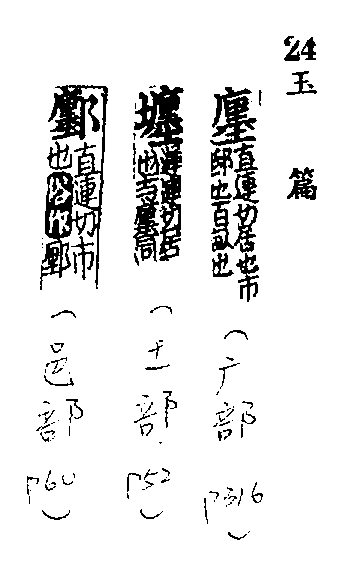 24
玉篇
廛 直連切居也市
邸也百畝也
(广部
P316)
壥 連連切居
也与廛同
(土部
P52)
鄽 直連切市
也俗作鄽
(邑部
P60)